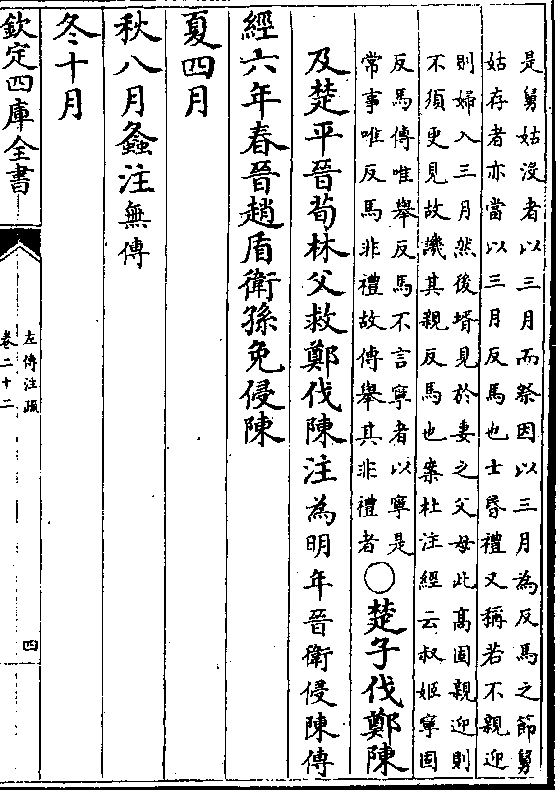 是舅姑沒者以三月而祭因以三月為反馬之節舅
姑存者亦當以三月反馬也士昏禮又稱若不親迎
則婦入三月然後壻見於妻之父母此髙固親迎則
不須更見故譏其親反馬也案杜注經云叔姬寧固
反馬傳唯舉反馬不言寧者以寧是
常事唯反馬非禮故傳舉其非禮者
○楚子伐鄭陳
及楚平晉荀林父救鄭伐陳注為明年晉衛侵陳傳
經六年春晉趙盾衛孫免侵陳
夏四月
秋八月螽注無傳
冬十月
欽定四庫全書
左傳注疏
卷二十二
四